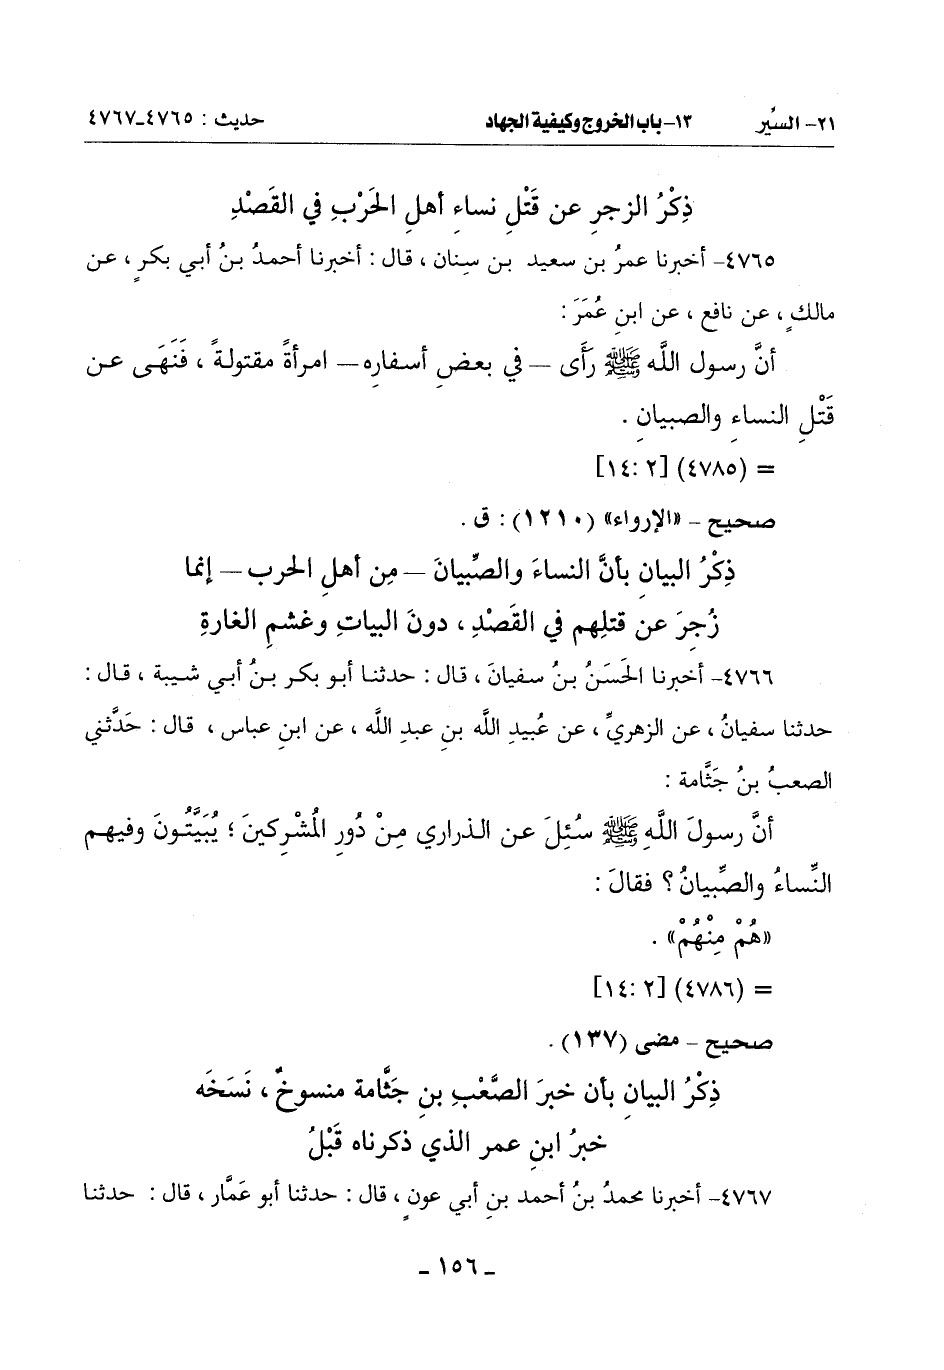 ٢١- السِّير ١٣-باب الخروج وكيفية الجهاد حديث : ٤٧٦٥-٤٧٦٧
ذِكْرُ الزجرِ عن قَتْلِ نساءِ أهلِ الحَرْبِ في القَصْدِ
٤٧٦٥- أخبرنا عمرُ بن سعيد بن سِنان ، قال : أخبرنا أحمدُ بنُ أبي بكرٍ ، عن
مالكٍ ، عن نافع ، عن ابنِ عُمَرَ :
أنَّ رسول اللَّه ﷺ رَأَى – في بعضِ أسفاره– امرأةً مقتولةً ، فَنَهَى عن
قَتْلِ النساءِ والصبيانِ .
= (٤٧٨٥) [٢ :١٤]
صحيح - «الإرواء» (١٢١٠) : ق .
ذِكْرُ البيانِ بأنَّ النساءَ والصِّبيانَ – مِن أهلِ الحرب – إنما
زُجِرَ عن قتلِهم في القَصْدِ ، دونَ البياتِ وغشمِ الغارةِ
٤٧٦٦- أخبرنا الحَسَنُ بنُ سفيانَ ، قال : حدثنا أبو بكر بنُ أبي شيبة ، قال :
حدثنا سفيانُ ، عن الزهريِّ ، عن عُبيدِ اللَّه بنِ عبدِ اللَّه ، عن ابنِ عباس ، قال : حَدَّثني
الصعبُ بنُ جَثَّامة :
أنَّ رسولَ اللَّهِ ﷺ سُئِلَ عن الذراري مِنْ دُورِ المُشْرِكينَ ؛ يُبَيَّتُونَ وفيهم
النِّساءُ والصِّبيانُ ؟ فقالَ :
«هُمْ مِنْهُمْ» .
= (٤٧٨٦) [٢ :١٤]
صحيح - مضى (١٣٧) .
ذِكْرُ البيانِ بأن خبرَ الصَّعْبِ بنِ جَثَّامة منسوخٌ ، نَسَخَه
خبرُ ابنِ عمر الذي ذكرناه قَبْلُ
٤٧٦٧- أخبرنا محمدُ بنُ أحمد بنِ أبي عونٍ ، قال : حدثنا أبو عَمَّار ، قال : حدثنا
- ١٥٦ -